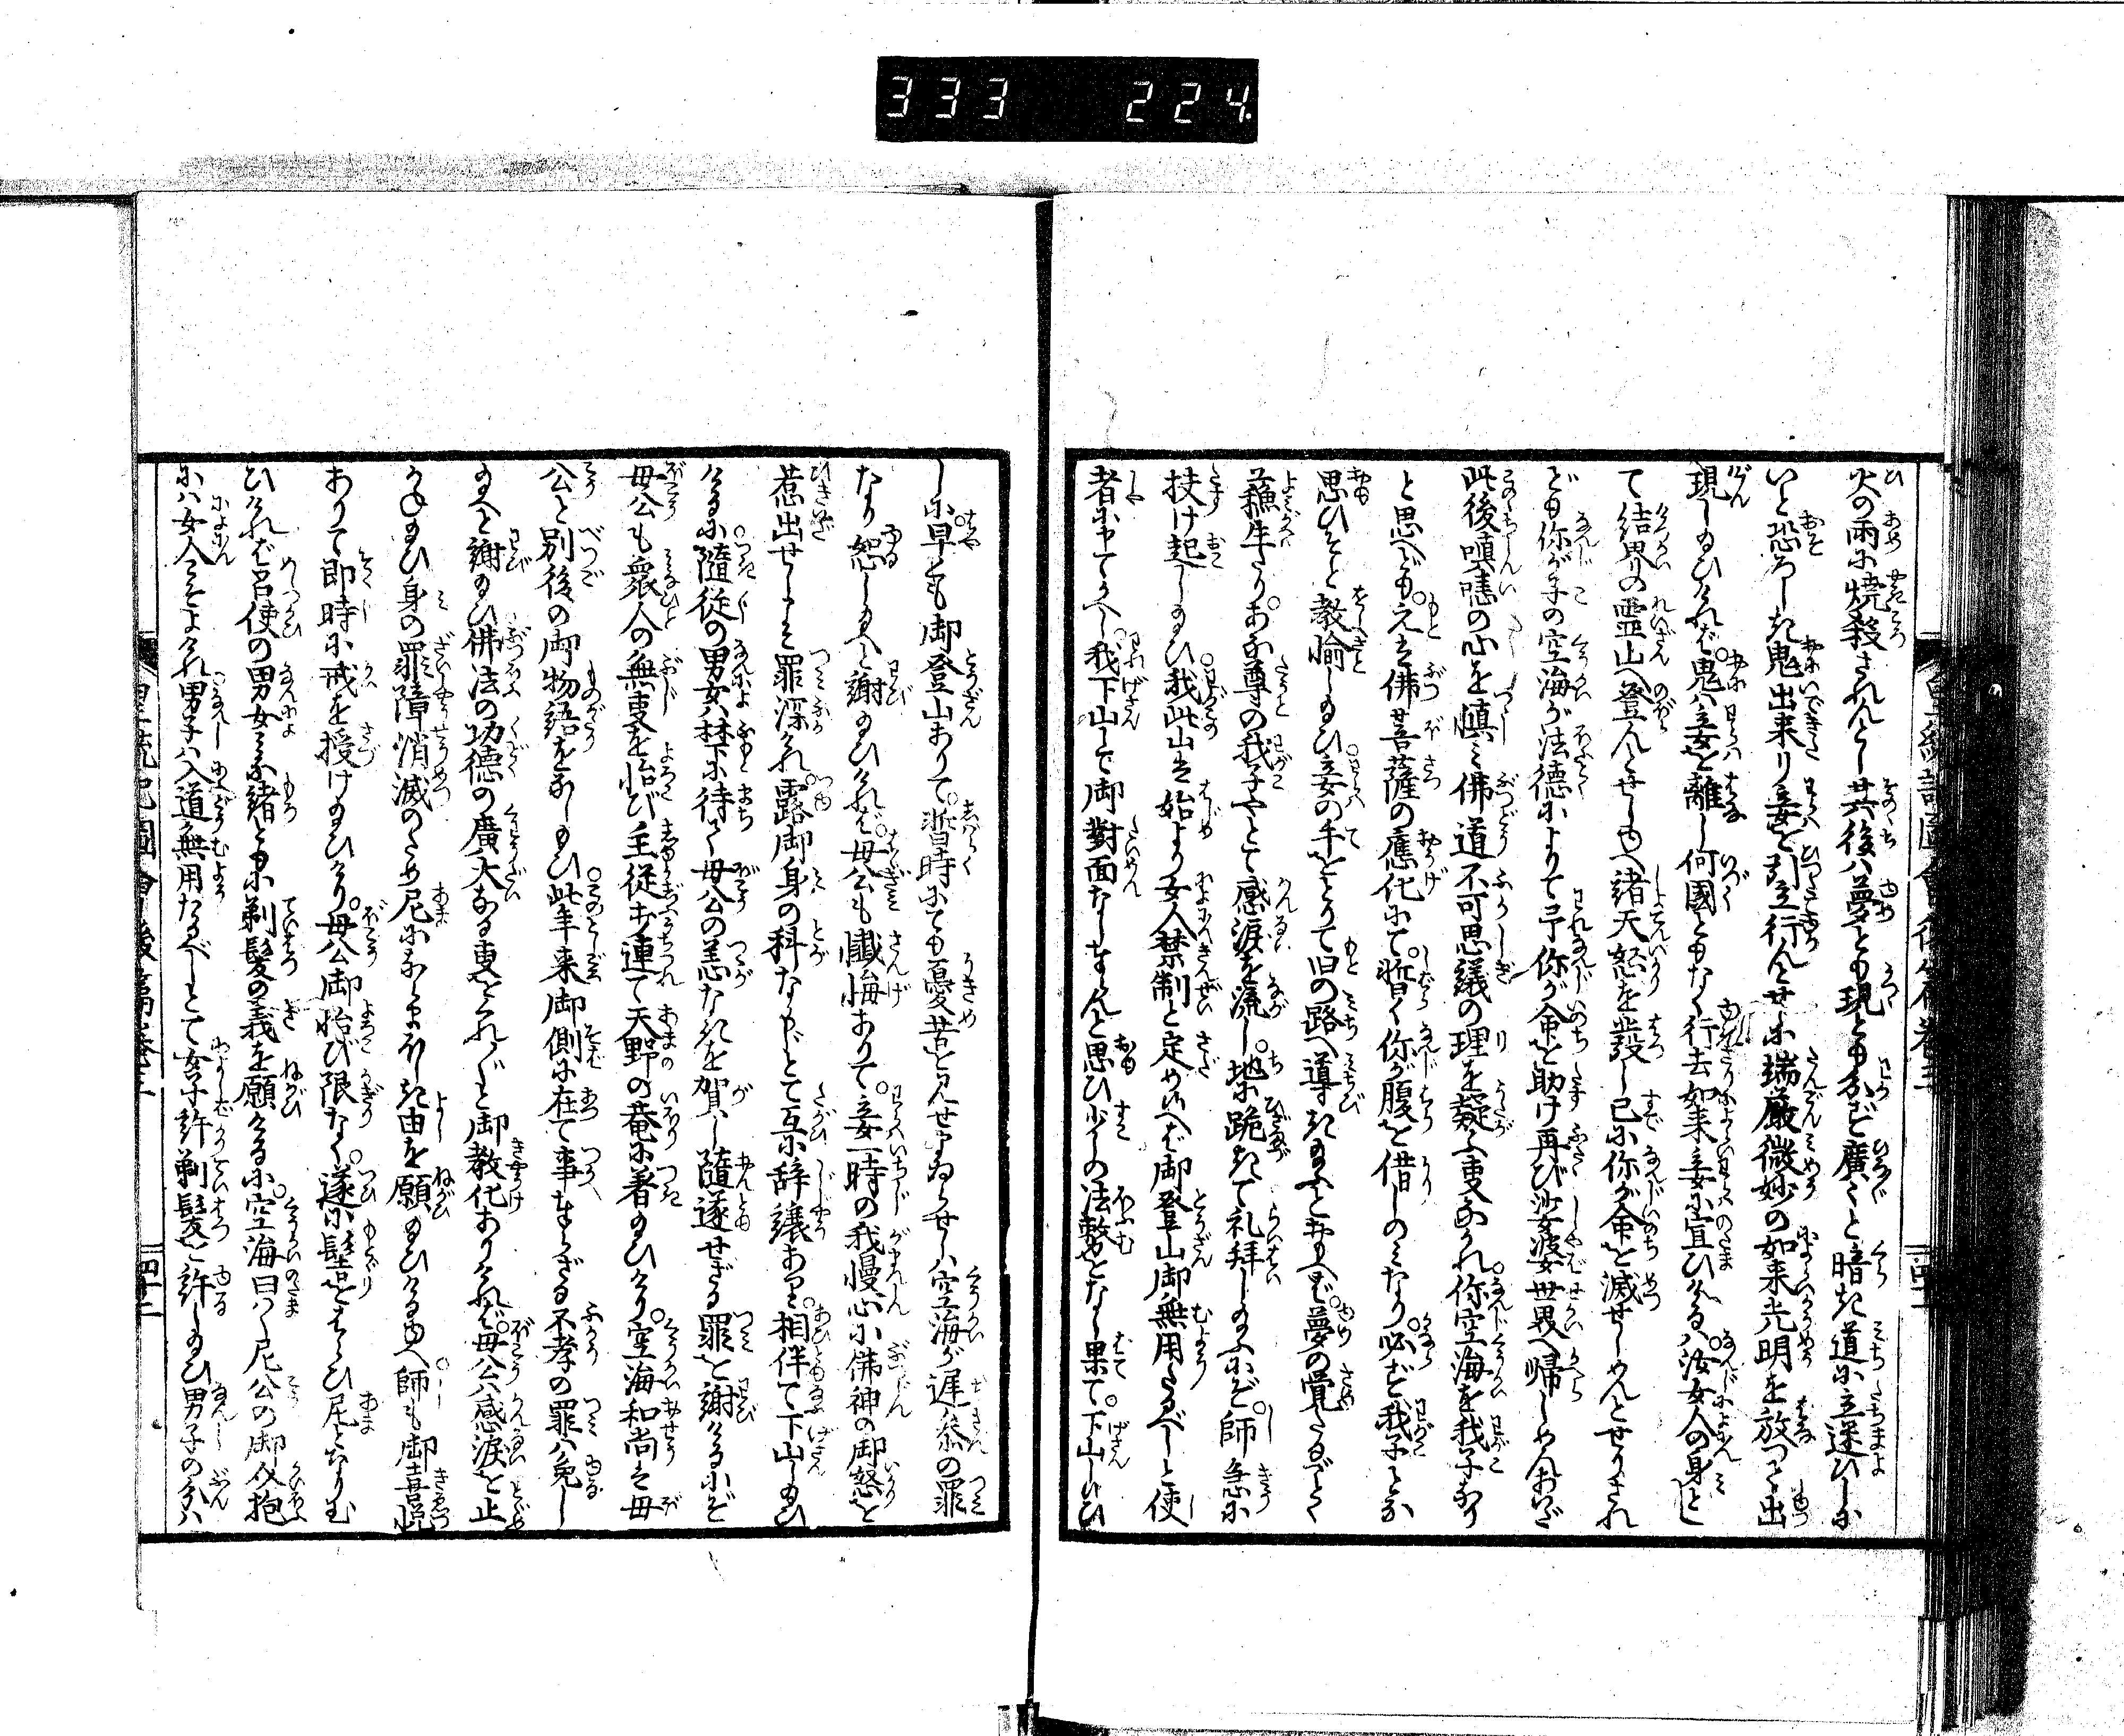 333 224
火の雨に焼殺されんとし其後ハ夢とも現とも分ず廣々と暗き道に立迷ひしに
いと恐ろしき鬼出来り妾を引立行んとせしに端厳微妙の如来光明を放つて出
現し給ひけれバ鬼ハ妾を離し何國ともなく行去如来妾に宣ひけるハ汝女人の身と
て結界の霊山へ登んとせしゆへ諸天怒を發し已に你が命を滅せしめんとせりされ
ども你が子の空海が法徳によりて予你が命を助け再び沙婆世界へ帰しめんおいざ
此後嗔恚の心を慎ミ佛道不可思議の理を疑ふ事なかれ你空海を我子なり
と思へども元是佛菩薩の應化にて暫く你が腹を借しのミなり必ず我子とな
思ひそと教諭し給ひ妾の手をとりて旧の路へ導き給ふと思へバ夢の覚たるごとく
蘓生たりあな尊の我子やとて感涙を流し地に跪きて礼拝し給ふにぞ師急に
扶け起し給ひ我此山を始より女人禁制と定め候へバ御登山御無用たるべしと使
者に申てかへし我下山して御對面なしまゐらせんと思ひ少しの法務をなし果て下山し候ひ
しに早くも御登山ありて暫時にても憂苦を見せまゐらせしハ空海が遅参の罪
なり恕し給へと謝給ひけれバ母公も懺悔ありて妾一時の我慢心に佛神の御怒を
惹出せしこそ罪深けれ露御身の科ならずとて互に辞譲あり相伴て下山し給ひ
けるに隨従の男女ハ林下に待て母公の恙なきを賀し隨遂せざる罪を謝けるにぞ
母公も衆人の無事を怡び主従打連て天野の菴に着給ひけり空海和尚は母
公と別後の御物語をなし給ひ此年来御側に在て事まゐらせざる不孝の罪ハ免し
給へと謝給ひ佛法の功徳の廣大なる事をくれ〴〵と御教化ありけれバ母公ハ感涙を止
かね給ひ身の罪障消滅のため尼になりまほしき由を願給ひけるゆへ師も御喜悦
ありて即時に戒を授け給ひけり母公御怡び限なく遂に髻をはらひ尼となり玉
ひけれバ召使の男女ミな緒ともに剃髪の義を願けるに空海曰く尼公の御介抱
にハ女人こそよけれ男子ハ入道無用たるべしとて女子許剃髪を許し給ひ男子の分ハ